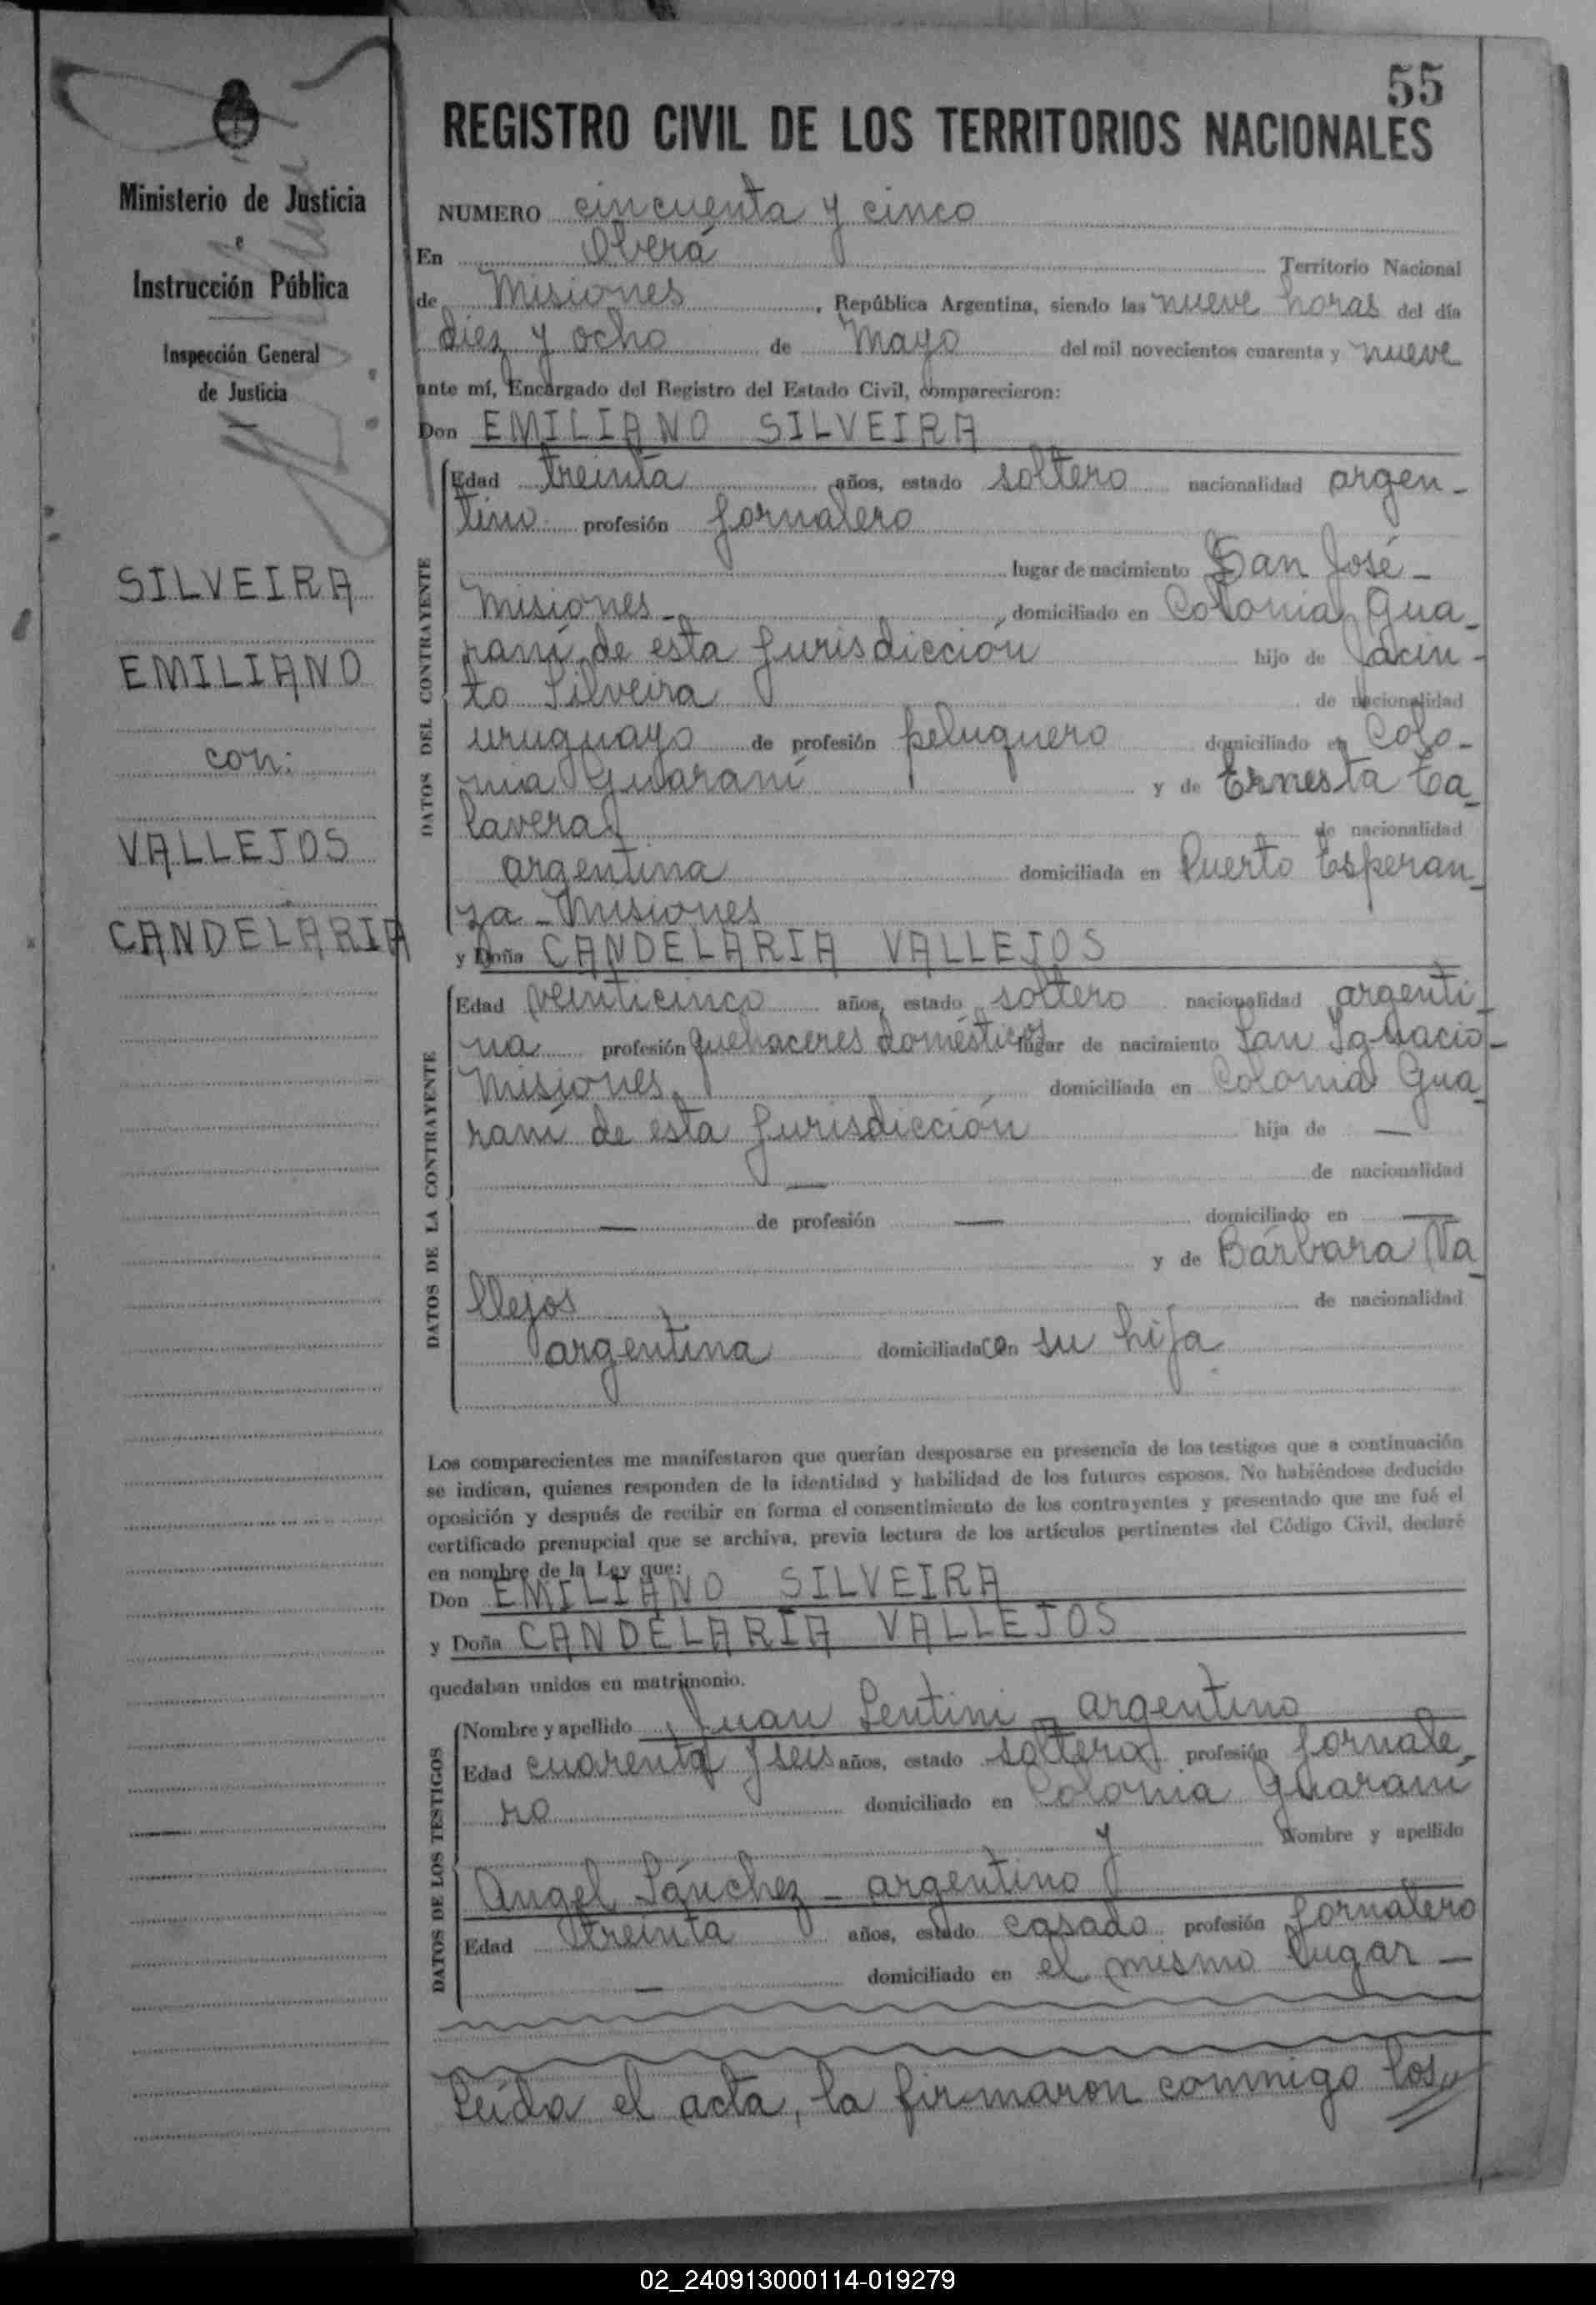 55
REGISTRO CIVIL DE LOS TERRITORIOS NACIONALES
Ministerio de Justicia
e
Instrucción Pública
Inspección General
de Justicia
SILVEIRA
EMILIANO
con:
VALLEJOS
CANDELARIA
NUMERO cincuenta y cinco
En Oberá Territorio Nacional
de Misiones, República Argentina, siendo las nueve horas del día
diez y ocho de Mayo del mil novecientos cuarenta y nueve
ante mí, Encargado del Registro del Estado Civil, comparecieron:
Don EMILIANO SILVEIRA
DATOS DEL CONTRAYENTE
Edad treinta años, estado soltero nacionalidad argen-
tino profesión jornalero
lugar de nacimiento San José -
Misiones - domiciliado en Colonia Gua-
raní de esta jurisdicción hijo de Jacin-
to Silveira de nacionalidad
uruguayo de profesión peluquero domiciliado en Colo-
nia Guaraní y de Ernesta Ta-
lavera de nacionalidad
argentina domiciliada en Puerto Esperan-
za - Misiones
y Doña CANDELARIA VALLEJOS
DATOS DE LA CONTRAYENTE
Edad veinticinco años, estado soltero nacionalidad argenti-
na profesión quehaceres domésticos lugar de nacimiento San Ignacio -
Misiones domiciliada en Colonia Gua-
raní de esta jurisdicción hija de —
— de nacionalidad
— de profesión — domiciliado en —
y de Bárbara Va-
llejos de nacionalidad
argentina domiciliada con su hija
Los comparecientes me manifestaron que querían desposarse en presencia de los testigos que a continuación
se indican, quienes responden de la identidad y habilidad de los futuros esposos. No habiéndose deducido
oposición y después de recibir en forma el consentimiento de los contrayentes y presentado que me fué el
certificado prenupcial que se archiva, previa lectura de los artículos pertinentes del Código Civil, declaré
en nombre de la Ley que:
Don EMILIANO SILVEIRA
y Doña CANDELARIA VALLEJOS
quedaban unidos en matrimonio.
DATOS DE LOS TESTIGOS
Nombre y apellido Juan Sentini - argentino
Edad cuarenta y seis años, estado soltero profesión jornale-
ro domiciliado en Colonia Guaraní
y Nombre y apellido
Angel Sánchez - argentino
Edad treinta años, estado casado profesión jornalero
— domiciliado en el mismo lugar —
Leída el acta, la firmaron conmigo los,,
02_240913000114-019279